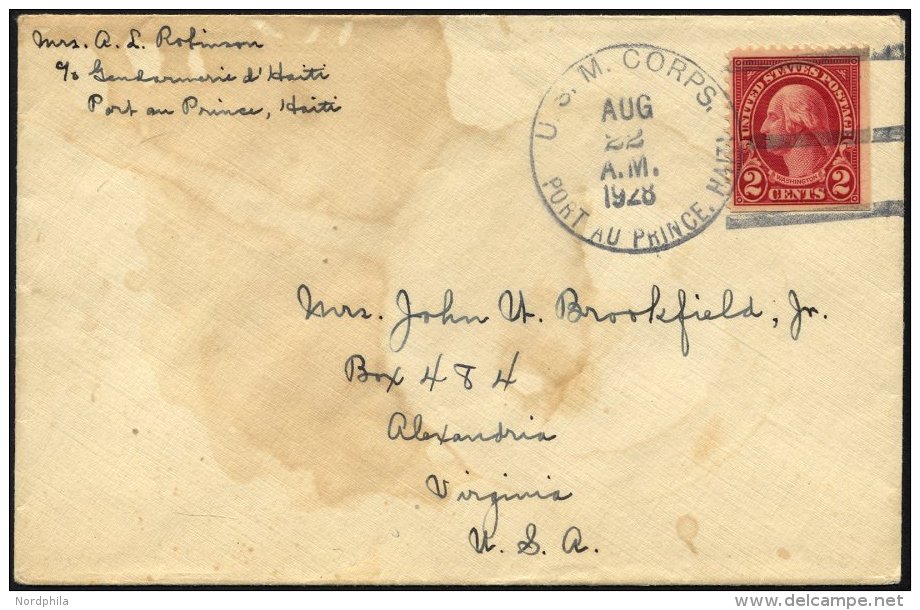 Mrs. A. L. Robinson
c/o Gendarmerie d'Haiti
Port au Prince, Haiti
U. S. M. CORPS,
AUG
22
A.M.
1928
PORT AU PRINCE, HAITI
UNITED STATES POSTAGE
WASHINGTON
2 CENTS 2
Mrs. John W. Brookfield, Jr.
Box 484
Alexandria
Virginia
U. S. A.
Nordphila
delcampe.net